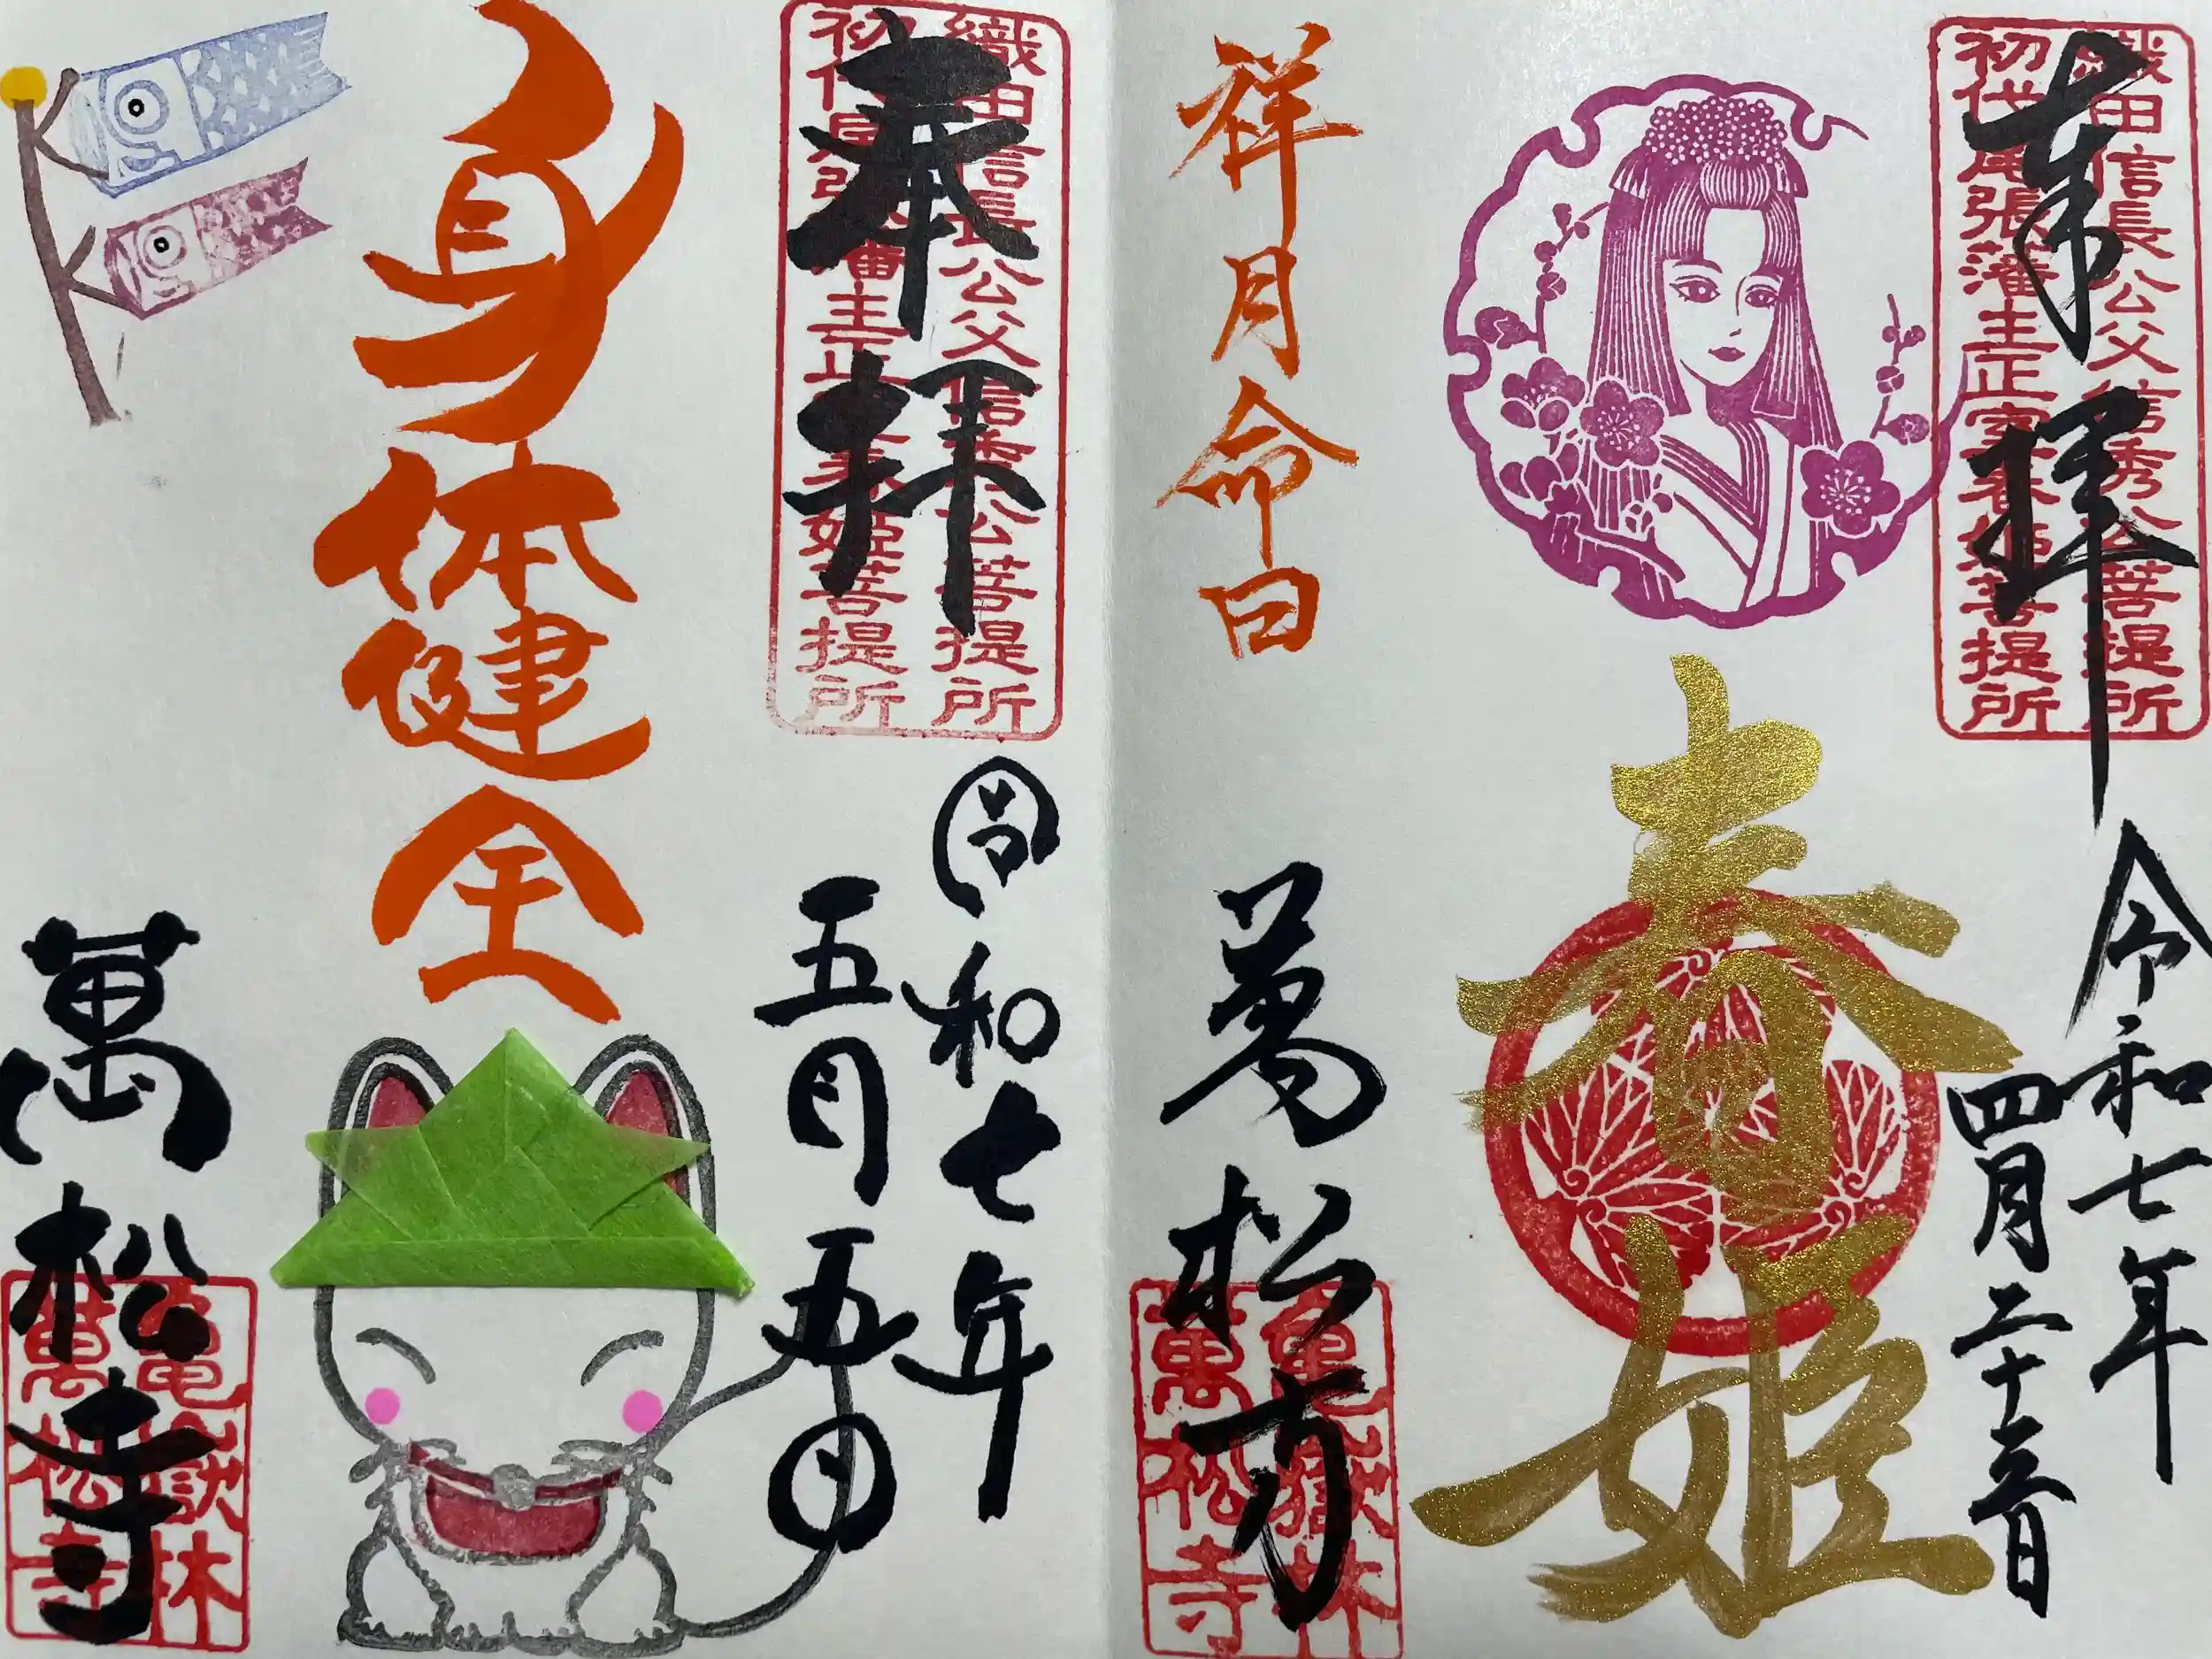 奉拝
織田信長公父信秀公菩提所
初代尾張藩主正室春姫菩提所
令和七年
四月二十三日
春姫
祥月命日
萬松寺
亀嶽林
萬松寺
奉拝
織田信長公父信秀公菩提所
初代尾張藩主正室春姫菩提所
令和七年
五月五日
身体健全
萬松寺
亀嶽林
萬松寺